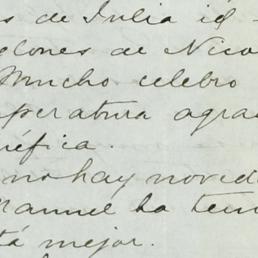 s de Julia ig
lones de Nico
Mucho celebro
peratura agra
néfica.
no hay noved
Manuel ha ten
tá mejor.